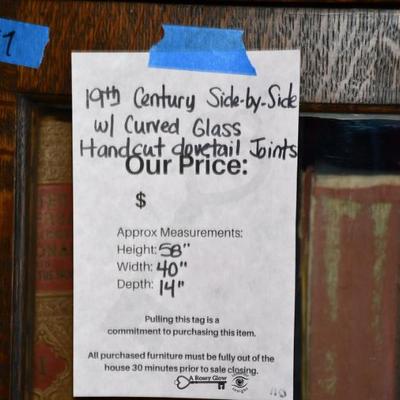 19th Century Side-by-Side
w/ Curved Glass
Handcut dovetail Joints
Our Price:
$
Approx Measurements:
Height: 58"
Width: 40"
Depth: 14"
Pulling this tag is a
commitment to purchasing this item.
All purchased furniture must be fully out of the
house 30 minutes prior to sale closing.
A Rosey Glow